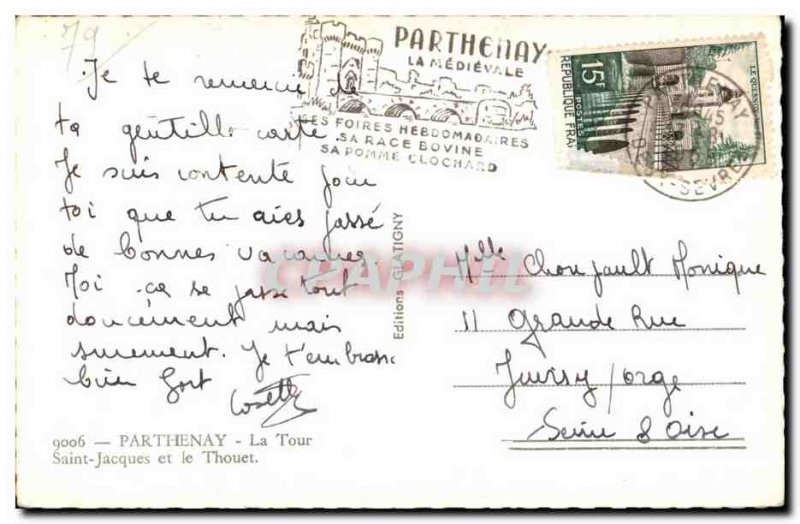 79
PARTHENAY
LA MÉDIÉVALE
SES FOIRES HEBDOMADAIRES
SA RACE BOVINE
SA POMME CLOCHARD
15F
POSTES
REPUBLIQUE FRA
LE QUESNOY
SEVRES
Je te remercie de
ta gentille carte.
Je suis contente pour
toi que tu aies passé
de bonnes vacances
Moi ça se passe tout
doucement mais
surement. Je t'embrasse
bien fort
Cosette
Editions GLATIGNY
CPAPHIL
Mlle Chonjault Monique
11 Grande Rue
Juvisy/orge
Seine & Oise
9006 — PARTHENAY - La Tour
Saint-Jacques et le Thouet.